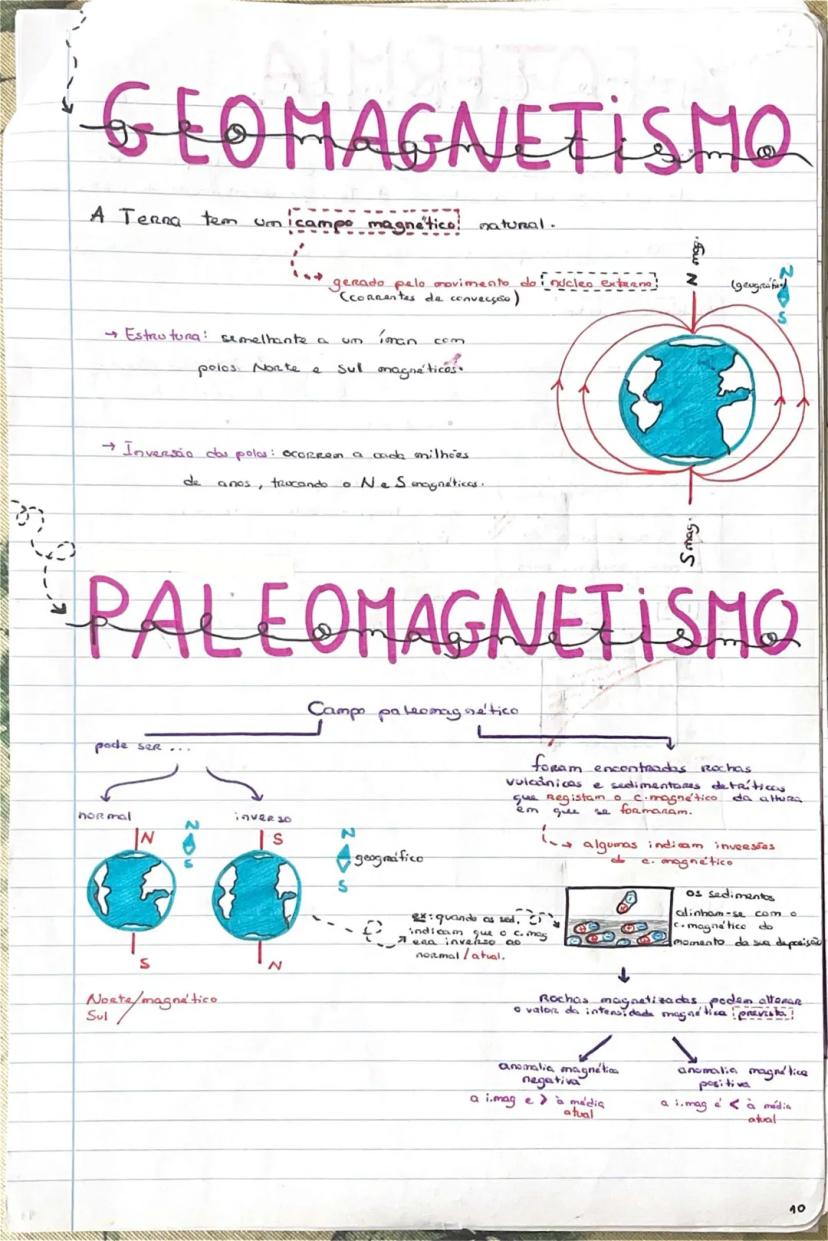 GEOMAGNETiSMO
geomagnetismo
A Terra tem um campo magnético natural.
gerado pelo movimento do núcleo externo
(correntes de convecção)
N mag.
(geográfico)
N
S
→ Estrutura: semelhante a um íman com
polos Norte e Sul magnéticos.
→ Inversão dos polos: ocorrem a cada milhões
de anos, trocando o N e S magnéticos.
S mag.
PALEOMAGNETiSMO
paleomagnetismo
Campo paleomagnético
pode ser ...
normal
inverso
N
N
S
S
N
S
geográfico
S
N
Norte/magnético
Sul
foram encontradas rochas
vulcânicas e sedimentares detríticas
que registam o c.magnético da altura
em que se formaram.
algumas indicam inversões
do c. magnético
ex: quando os sed.
indicam que o c.mag
era inverso ao
normal/atual.
os sedimentos
alinham-se com o
c.magnético do
momento da sua deposição
Rochas magnetizadas podem alterar
o valor da intensidade magnética prevista
anomalia magnética
negativa
a i.mag e > à média
atual
anomalia magnética
positiva
a i.mag é < à média
atual
10